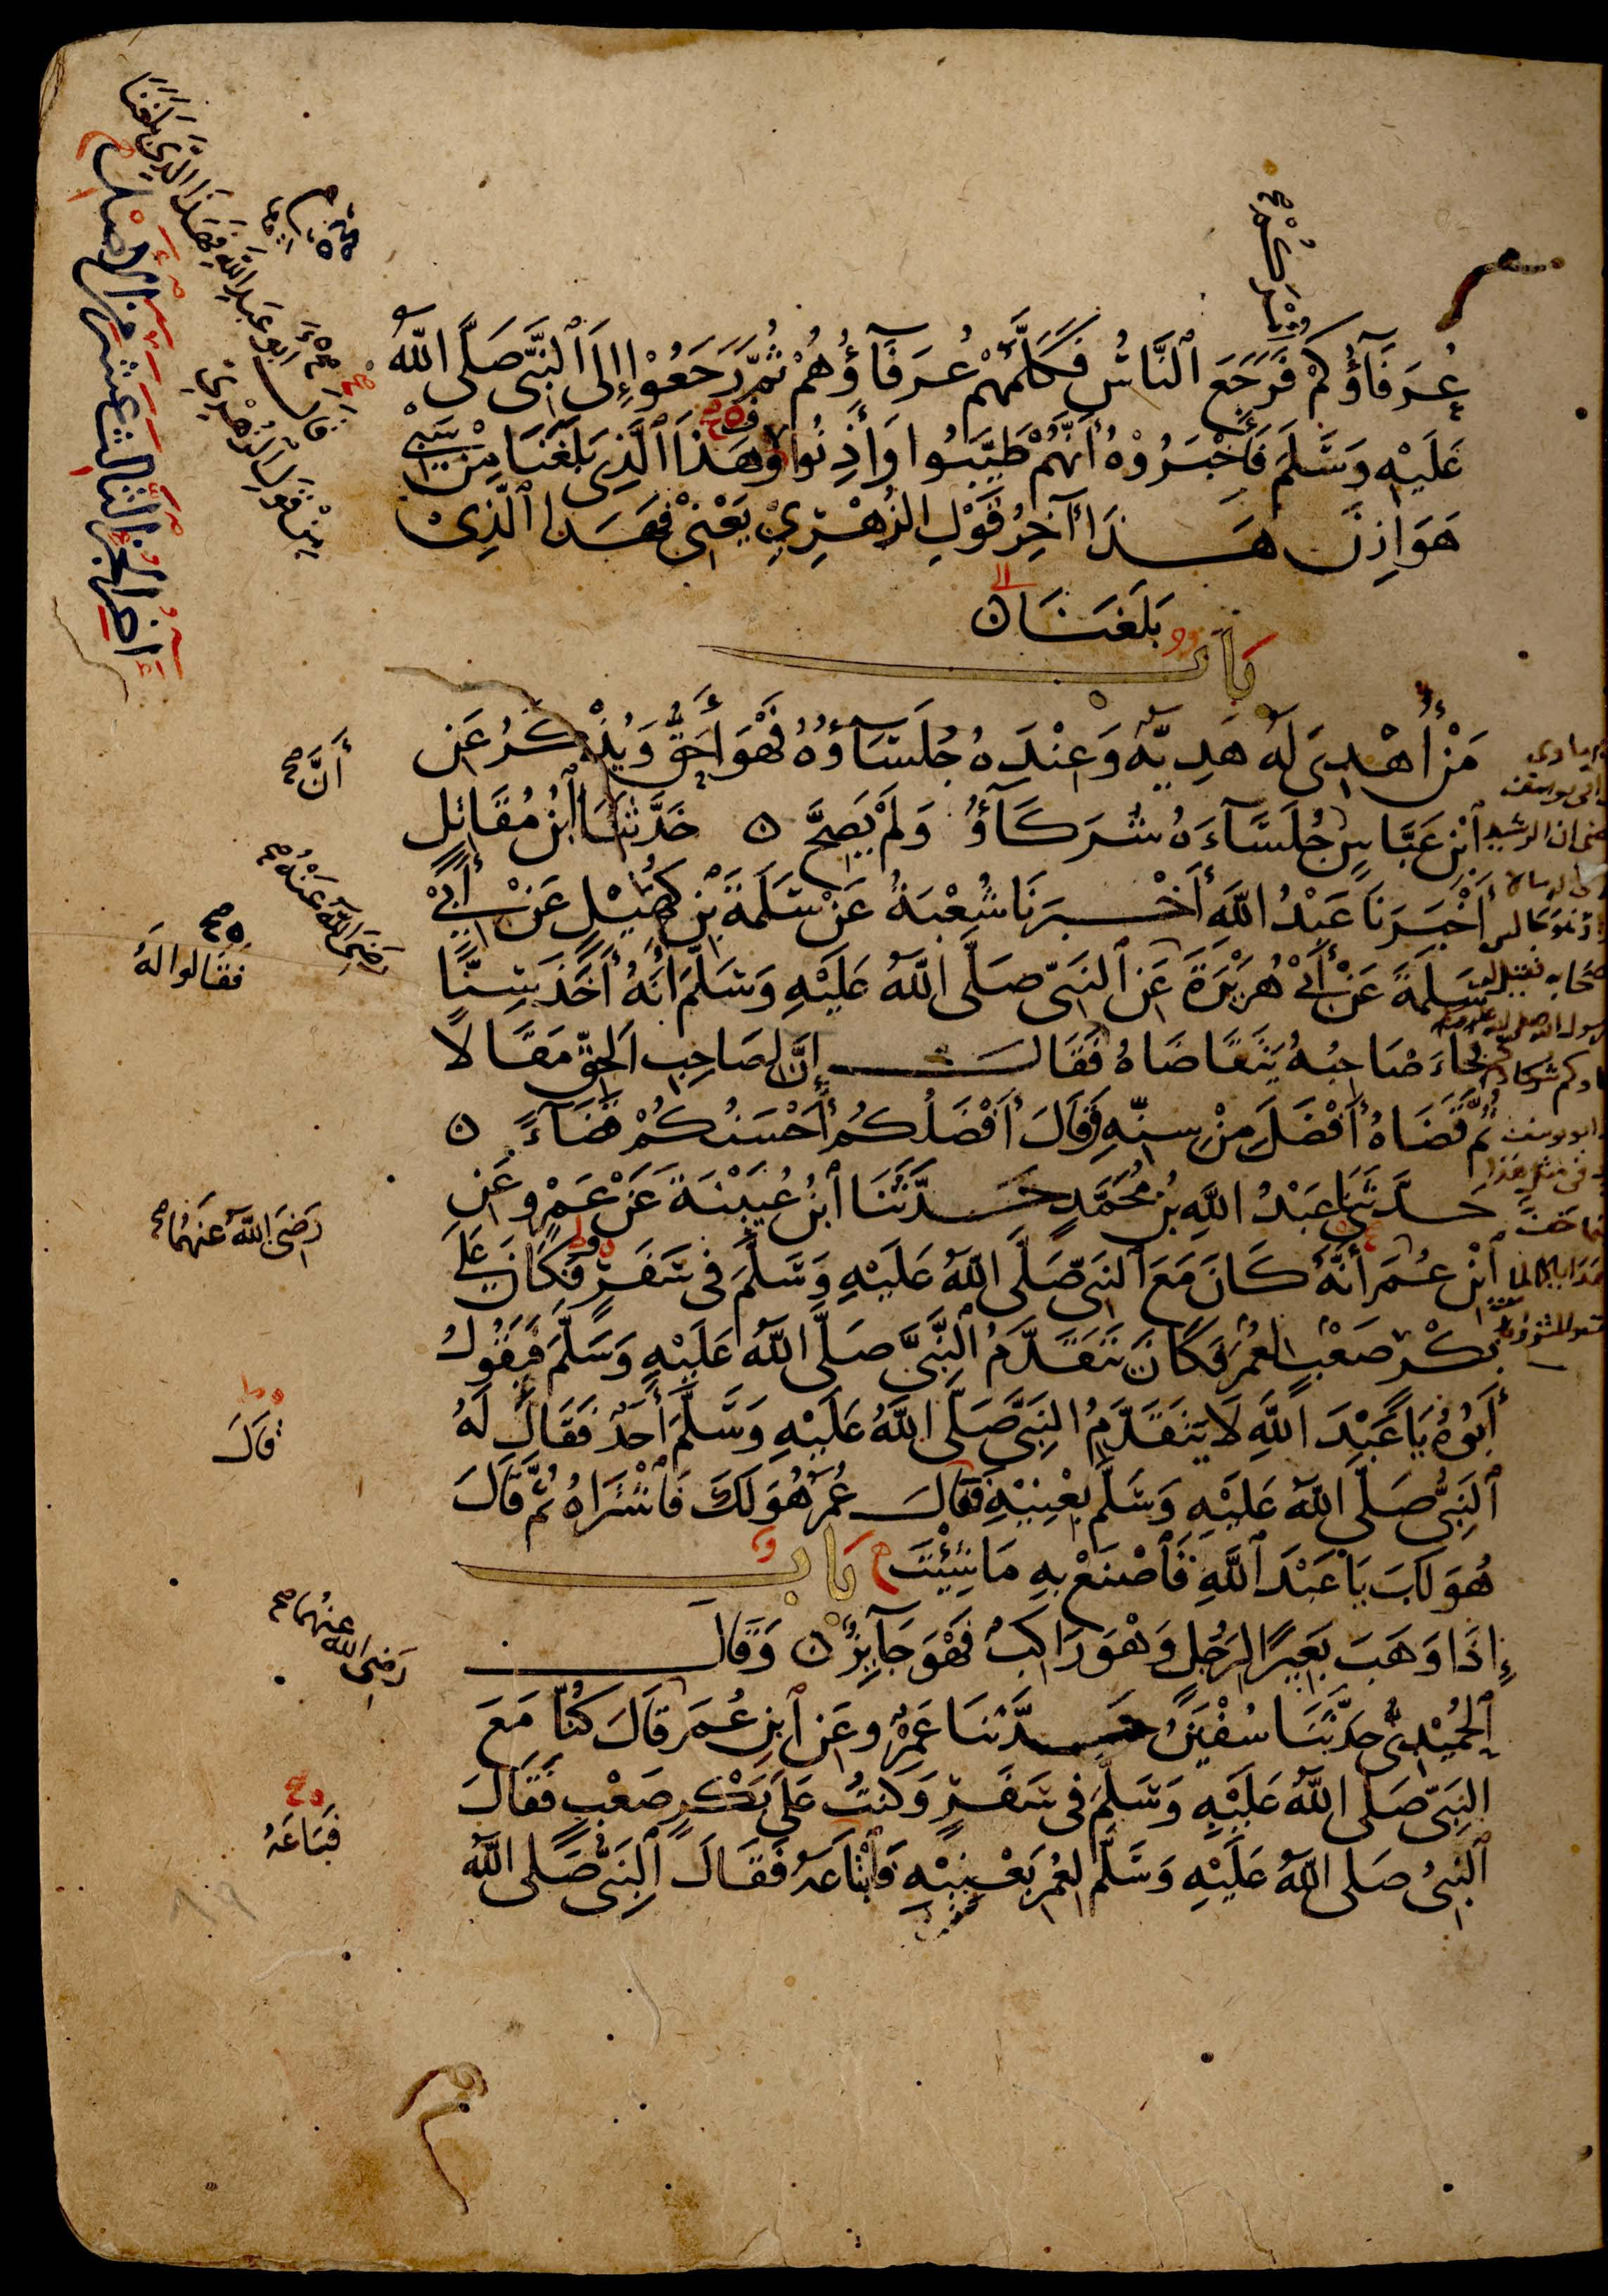 عُرَفَآؤُكُمْ فَرَجَعَ ٱلنَّاسُ فَكَلَّمَهُمْ عُرَفَآؤُهُمْ ثُمَّ رَجَعُوْا إِلَى ٱلنَّبِىِّ صَلَّى اللَّهُ
عَلَيْهِ وَسَلَّمَ فَأَخْبَرُوْهُ أَنَّهُمْ طَيَّبُوا وَأَذِنُوا وَهَذَا ٱلَّذِى بَلَغَنَا مِنْ سَبْىِ
هَوَازِنَ هَذَا آخِرُ قَوْلِ الزُّهْرِيِّ يَعْنِىْ فَهَذَا ٱلَّذِىْ
بَلَغَنَا ه
بَابٌ
مَنْ أُهْدِىَ لَهُ هَدِيَّةٌ وَعِنْدَهُ جُلَسَآؤُهُ فَهْوَ أَحَقُّ وَيُذْكَرُ عَنِ
ٱبْنِ عَبَّاسٍ جُلَسَآءَهُ شُرَكَآؤُ وَلَمْ يَصِحَّ ه حَدَّثَنَا ٱبْنُ مُقَاتِلٍ
أَخْبَرَنَا عَبْدُ اللَّهِ أَخْبَرَنَا شُعْبَةُ عَنْ سَلَمَةَ بْنِ كُهَيْلٍ عَنْ أَبِىْ
سَلَمَةَ عَنْ أَبِىْ هُرَيْرَةَ عَنِ ٱلنَّبِىِّ صَلَّى اللَّهُ عَلَيْهِ وَسَلَّمَ أَنَّهُ أَخَذَ سِنًّا
فَجَاءَ صَاحِبُهُ يَتَقَاضَاهُ فَقَالَ إِنَّ لِصَاحِبِ الْحَقِّ مَقَالًا
ثُمَّ قَضَاهُ أَفْضَلَ مِنْ سِنِّهِ وَقَالَ أَفْضَلُكُمْ أَحْسَنُكُمْ قَضَآءً ه
حَدَّثَنِى عَبْدُ اللَّهِ بْنُ مُحَمَّدٍ حَدَّثَنَا ٱبْنُ عُيَيْنَةَ عَنْ عَمْرٍو عَنِ
ٱبْنِ عُمَرَ أَنَّهُ كَانَ مَعَ ٱلنَّبِىِّ صَلَّى اللَّهُ عَلَيْهِ وَسَلَّمَ فِى سَفَرٍ فَكَانَ عَلَى
بَكْرٍ صَعْبٍ لِعُمَرَ فَكَانَ يَتَقَدَّمُ ٱلنَّبِىَّ صَلَّى اللَّهُ عَلَيْهِ وَسَلَّمَ فَيَقُولُ
أَبُوْهُ يَا عَبْدَ اللَّهِ لَا يَتَقَدَّمُ النَّبِىَّ صَلَّى اللَّهُ عَلَيْهِ وَسَلَّمَ أَحَدٌ فَقَالَ لَهُ
ٱلنَّبِىُّ صَلَّى اللَّهُ عَلَيْهِ وَسَلَّمَ بِعْنِيْهِ فَقَالَ عُمَرُ هُوَ لَكَ فَاشْتَرَاهُ ثُمَّ قَالَ
هُوَ لَكَ يَا عَبْدَ ٱللَّهِ فَٱصْنَعْ بِهِ مَا شِئْتَ بَابٌ
إِذَا وَهَبَ بَعِيْرًا لِرَجُلٍ وَهْوَ رَاكِبٌ فَهْوَ جَآئِزٌ ه وَقَالَ
ٱلْحُمَيْدِىُّ حَدَّثَنَا سُفْيَنُ حَدَّثَنَا عَمْرٌو عَنِ ٱبْنِ عُمَرَ قَالَ كُنَّا مَعَ
النَّبِىِّ صَلَى اللَّهُ عَلَيْهِ وَسَلَّمَ فِى سَفَرٍ وَكُنْتُ عَلَى بَكْرٍ صَعْبٍ فَقَالَ
ٱلنَّبِىُّ صَلى اللَّهُ عَلَيْهِ وَسَلَّمَ لِعُمَرَ بِعْنِيْهِ فَٱبْتَاعَهُ فَقَالَ ٱلنَّبِىُّ صَلى اللَّهُ
قال ابو عَبدِ اللَّهِ فَهَذَا الَّذِى بَلَغَنَا
مِنْ قَوْلِ الزُهْرِيّ
اخر الجزء الثالث عشر من الاصل
أَنَّ صح
رَضِىَ اللَّهُ عَنْهُ صح
فقَالوا لَهُ
رَضِىَ اللَّهُ عَنهُمَا صح
قَالَ
رَضِىَ الله عنهُمَا صح
فَبَاعَهُ
٨٩